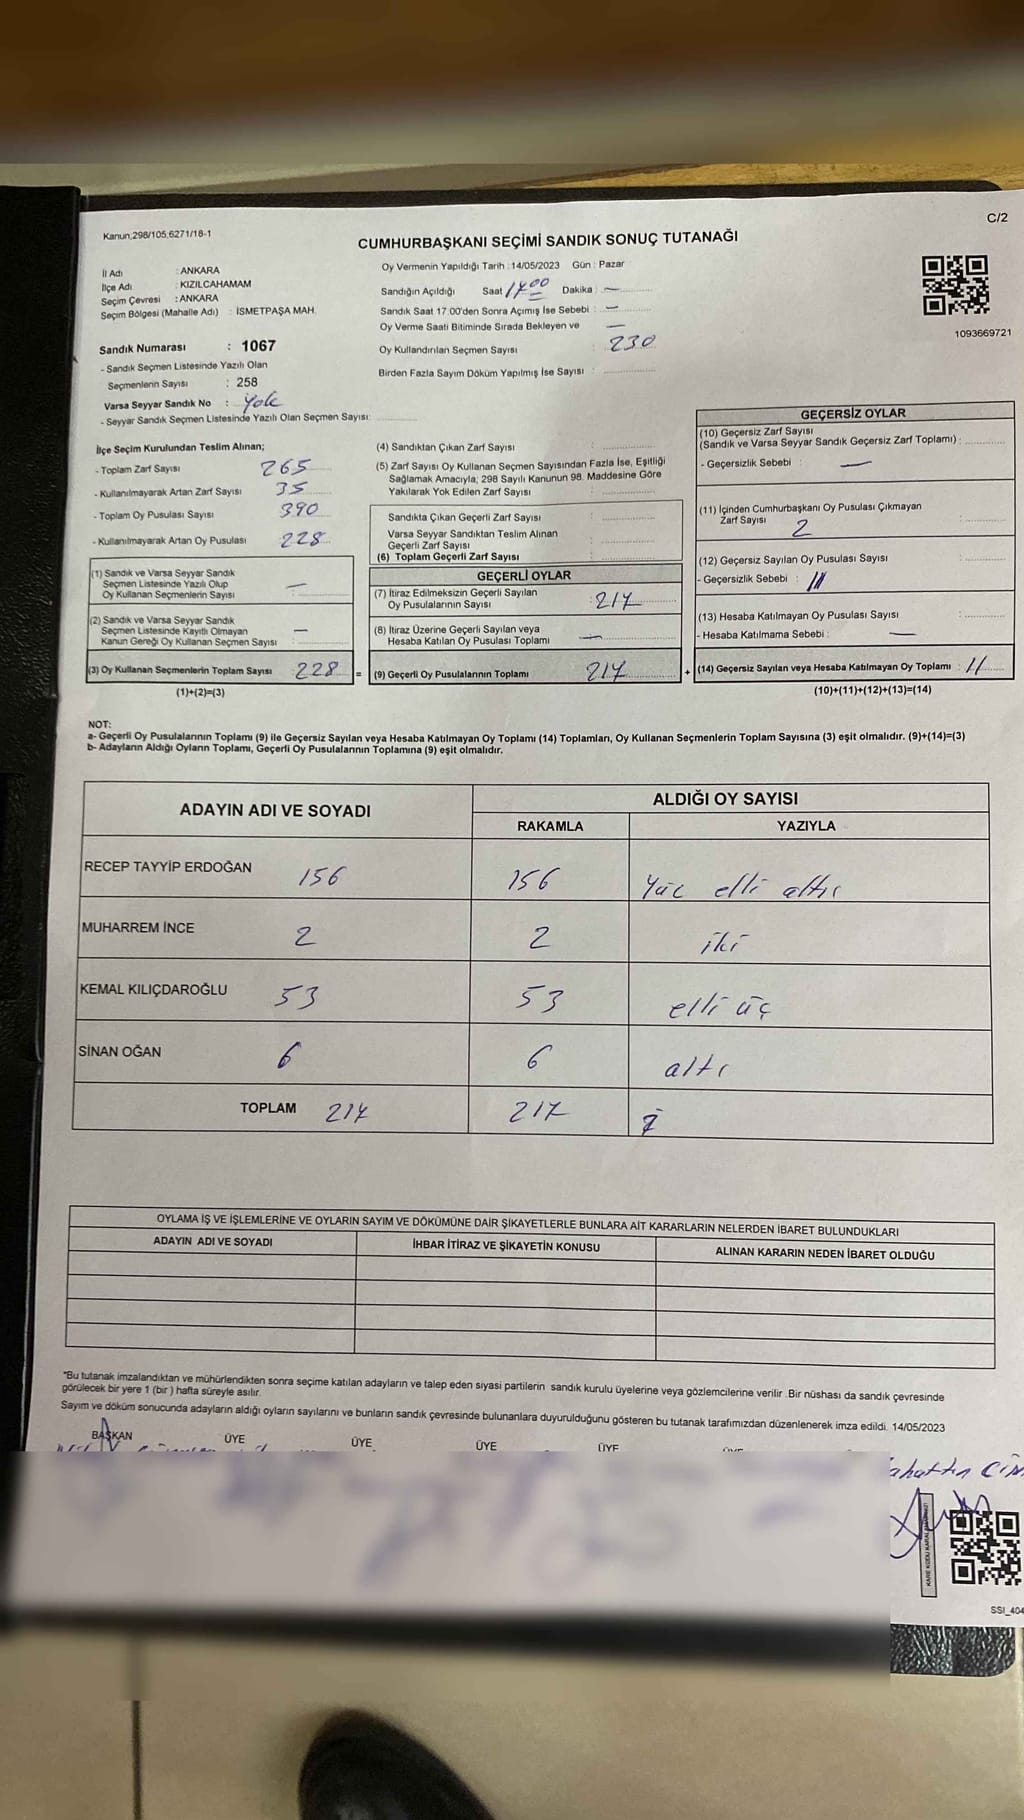 C/2
Kanun;298/105,6271/18-1
CUMHURBAŞKANI SEÇİMİ SANDIK SONUÇ TUTANAĞI
İl Adı : ANKARA
İlçe Adı : KIZILCAHAMAM
Seçim Çevresi : ANKARA
Seçim Bölgesi (Mahalle Adı) : İSMETPAŞA MAH.
Oy Vermenin Yapıldığı Tarih : 14/05/2023 Gün : Pazar
Sandığın Açıldığı Saat 17.00 Dakika : —
Sandık Saat 17.00'den Sonra Açımış İse Sebebi : —
Oy Verme Saati Bitiminde Sırada Bekleyen ve —
Oy Kullandırılan Seçmen Sayısı : 230
Birden Fazla Sayım Döküm Yapılmış İse Sayısı :
1093669721
Sandık Numarası : 1067
- Sandık Seçmen Listesinde Yazılı Olan
Seçmenlerin Sayısı : 258
Varsa Seyyar Sandık No : Yok
- Seyyar Sandık Seçmen Listesinde Yazılı Olan Seçmen Sayısı:
İlçe Seçim Kurulundan Teslim Alınan;
- Toplam Zarf Sayısı 265
- Kullanılmayarak Artan Zarf Sayısı 35
- Toplam Oy Pusulası Sayısı 390
- Kullanılmayarak Artan Oy Pusulası 228
(1) Sandık ve Varsa Seyyar Sandık
Seçmen Listesinde Yazılı Olup
Oy Kullanan Seçmenlerin Sayısı : —
(2) Sandık ve Varsa Seyyar Sandık
Seçmen Listesinde Kayıtlı Olmayan
Kanun Gereği Oy Kullanan Seçmen Sayısı : —
(3) Oy Kullanan Seçmenlerin Toplam Sayısı 228 =
(1)+(2)=(3)
(4) Sandıktan Çıkan Zarf Sayısı :
(5) Zarf Sayısı Oy Kullanan Seçmen Sayısından Fazla İse, Eşitliği
Sağlamak Amacıyla; 298 Sayılı Kanunun 98. Maddesine Göre
Yakılarak Yok Edilen Zarf Sayısı :
Sandıkta Çıkan Geçerli Zarf Sayısı :
Varsa Seyyar Sandıktan Teslim Alınan
Geçerli Zarf Sayısı :
(6) Toplam Geçerli Zarf Sayısı :
GEÇERLİ OYLAR
(7) İtiraz Edilmeksizin Geçerli Sayılan
Oy Pusulalarının Sayısı : 217
(8) İtiraz Üzerine Geçerli Sayılan veya
Hesaba Katılan Oy Pusulası Toplamı : —
(9) Geçerli Oy Pusulalarının Toplamı 217 +
GEÇERSİZ OYLAR
(10) Geçersiz Zarf Sayısı
(Sandık ve Varsa Seyyar Sandık Geçersiz Zarf Toplamı) :
- Geçersizlik Sebebi : —
(11) İçinden Cumhurbaşkanı Oy Pusulası Çıkmayan
Zarf Sayısı 2 :
(12) Geçersiz Sayılan Oy Pusulası Sayısı :
- Geçersizlik Sebebi :
(13) Hesaba Katılmayan Oy Pusulası Sayısı :
- Hesaba Katılmama Sebebi : —
(14) Geçersiz Sayılan veya Hesaba Katılmayan Oy Toplamı : 11
(10)+(11)+(12)+(13)=(14)
NOT:
a- Geçerli Oy Pusulalarının Toplamı (9) ile Geçersiz Sayılan veya Hesaba Katılmayan Oy Toplamı (14) Toplamları, Oy Kullanan Seçmenlerin Toplam Sayısına (3) eşit olmalıdır. (9)+(14)=(3)
b- Adayların Aldığı Oyların Toplamı, Geçerli Oy Pusulalarının Toplamına (9) eşit olmalıdır.
ADAYIN ADI VE SOYADI ALDIĞI OY SAYISI
RAKAMLA YAZIYLA
RECEP TAYYİP ERDOĞAN 156 156 Yüz elli altı
MUHARREM İNCE 2 2 iki
KEMAL KILIÇDAROĞLU 53 53 elli üç
SİNAN OĞAN 6 6 altı
TOPLAM 217 217
OYLAMA İŞ VE İŞLEMLERİNE VE OYLARIN SAYIM VE DÖKÜMÜNE DAİR ŞİKAYETLERLE BUNLARA AİT KARARLARIN NELERDEN İBARET BULUNDUKLARI
ADAYIN ADI VE SOYADI İHBAR İTİRAZ VE ŞİKAYETİN KONUSU ALINAN KARARIN NEDEN İBARET OLDUĞU
*Bu tutanak imzalandıktan ve mühürlendikten sonra seçime katılan adayların ve talep eden siyasi partilerin sandık kurulu üyelerine veya gözlemcilerine verilir .Bir nüshası da sandık çevresinde
görülecek bir yere 1 (bir ) hafta süreyle asılır.
Sayım ve döküm sonucunda adayların aldığı oyların sayılarını ve bunların sandık çevresinde bulunanlara duyurulduğunu gösteren bu tutanak tarafımızdan düzenlenerek imza edildi. 14/05/2023
BAŞKAN ÜYE ÜYE ÜYE ÜYE ÜYE
SSI_404